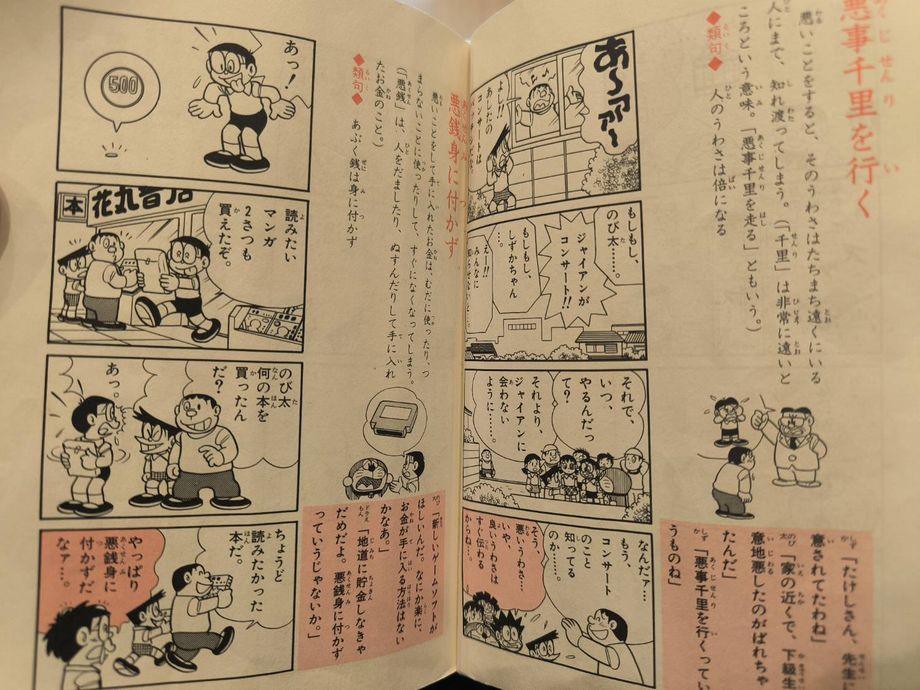 悪事千里を行く
悪いことをすると、そのうわさはたちまち遠くにいる
人にまで、知れ渡ってしまう。(「千里」は非常に遠いと
ころという意味。「悪事千里を走る」ともいう。)
◆類句◆
人のうわさは倍になる
あ〜ァァ〜
よし!!
あしたの
コンサートは
もしもし、
のび太……。
ジャイアンが
コンサート!!
もしもし、
しずかちゃん
…。
えー!!
みんなに
それで、
いつ、
やるんだっ
て?
それより、
ジャイアンに
会わない
ように……。
なんだァ…
もう、
コンサート
のこと
知ってる
のか……。
そう、
悪いうわさ…
いや、
良いうわさは
すぐ伝わる
からね…。
「たけしさん、先生に
意されてたわね」
「家の近くで、下級生
意地悪したのがばれちゃ
たんだ」
「悪事千里を行くってい
うものね」
悪銭身に付かず
悪いことをして手に入れたお金は、むだに使ったり、つ
まらないことに使ったりして、すぐになくなってしまう。
(「悪銭」は、人をだましたり、ぬすんだりして手に入れ
たお金のこと。)
◆類句◆
あぶく銭は身に付かず
あっ!
500
本
花丸書店
読みたい
マンガ
2さつも
買えたぞ。
のび太
何の本を
買ったん
だ?
あっ。
ちょうど
読みたかった
本だ。
やっぱり
悪銭身に
付かずだ
なァ…。
「新しいゲームソフトが
ほしいんだ。なにか楽に、
お金が手に入る方法はない
かなあ。」
「地道に貯金しなきゃ
だめだよ。悪銭身に付かず
っていうじゃないか。」